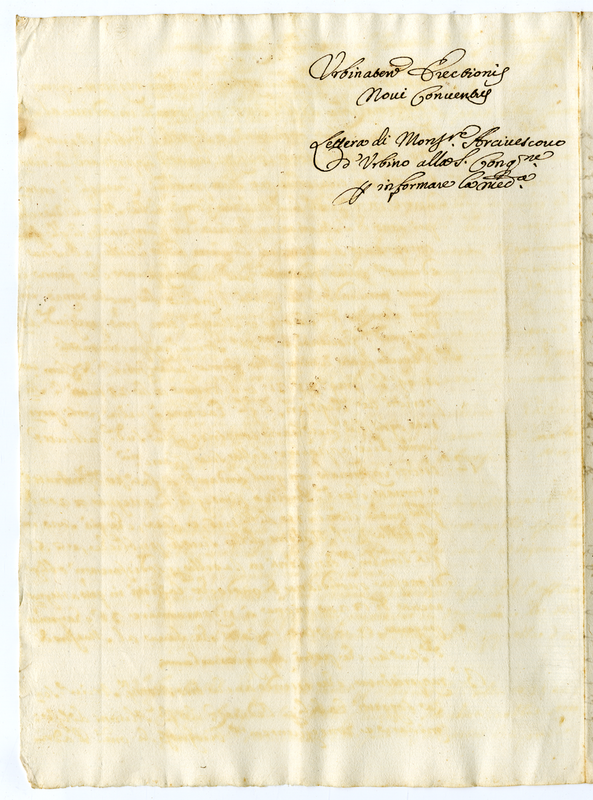 Urbinaten Erectionis
Noui Conuentus
Lettera di Monsre. Arciuescouo
d'Urbino alla S. Congne.
p informare la meda.